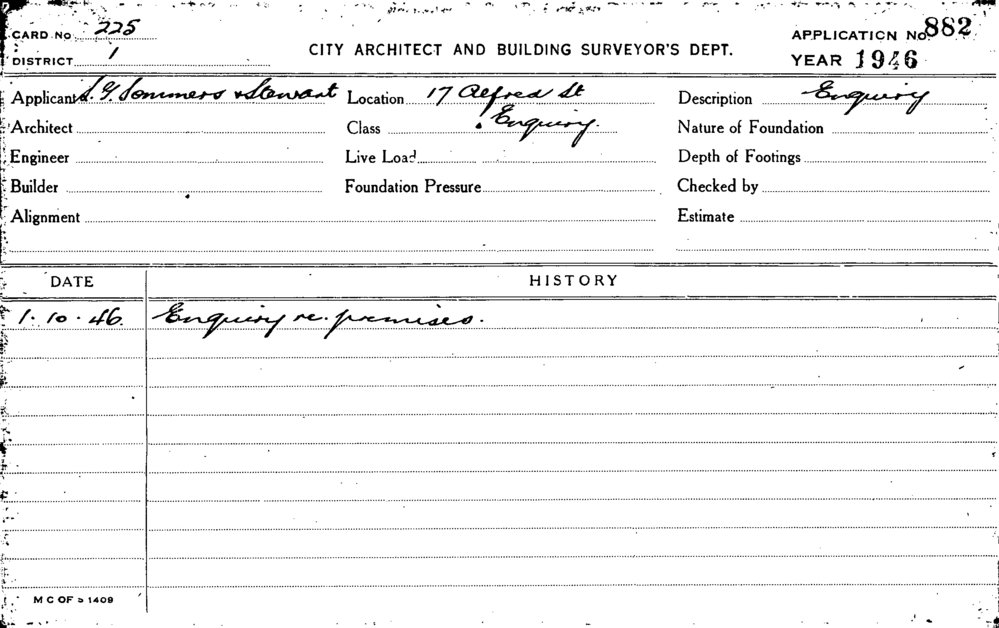 CARD No 225
DISTRICT 1
CITY ARCHITECT AND BUILDING SURVEYOR'S DEPT.
APPLICATION No. 882
YEAR 1946
Applicant S. G. Sommers & Stewart Location 17 Alfred St Description Enquiry
Architect Class Enquiry. Nature of Foundation
Engineer Live Load Depth of Footings
Builder Foundation Pressure Checked by
Alignment Estimate
DATE HISTORY
1.10.46. Enquiry re. premises.
M C OF S 1409